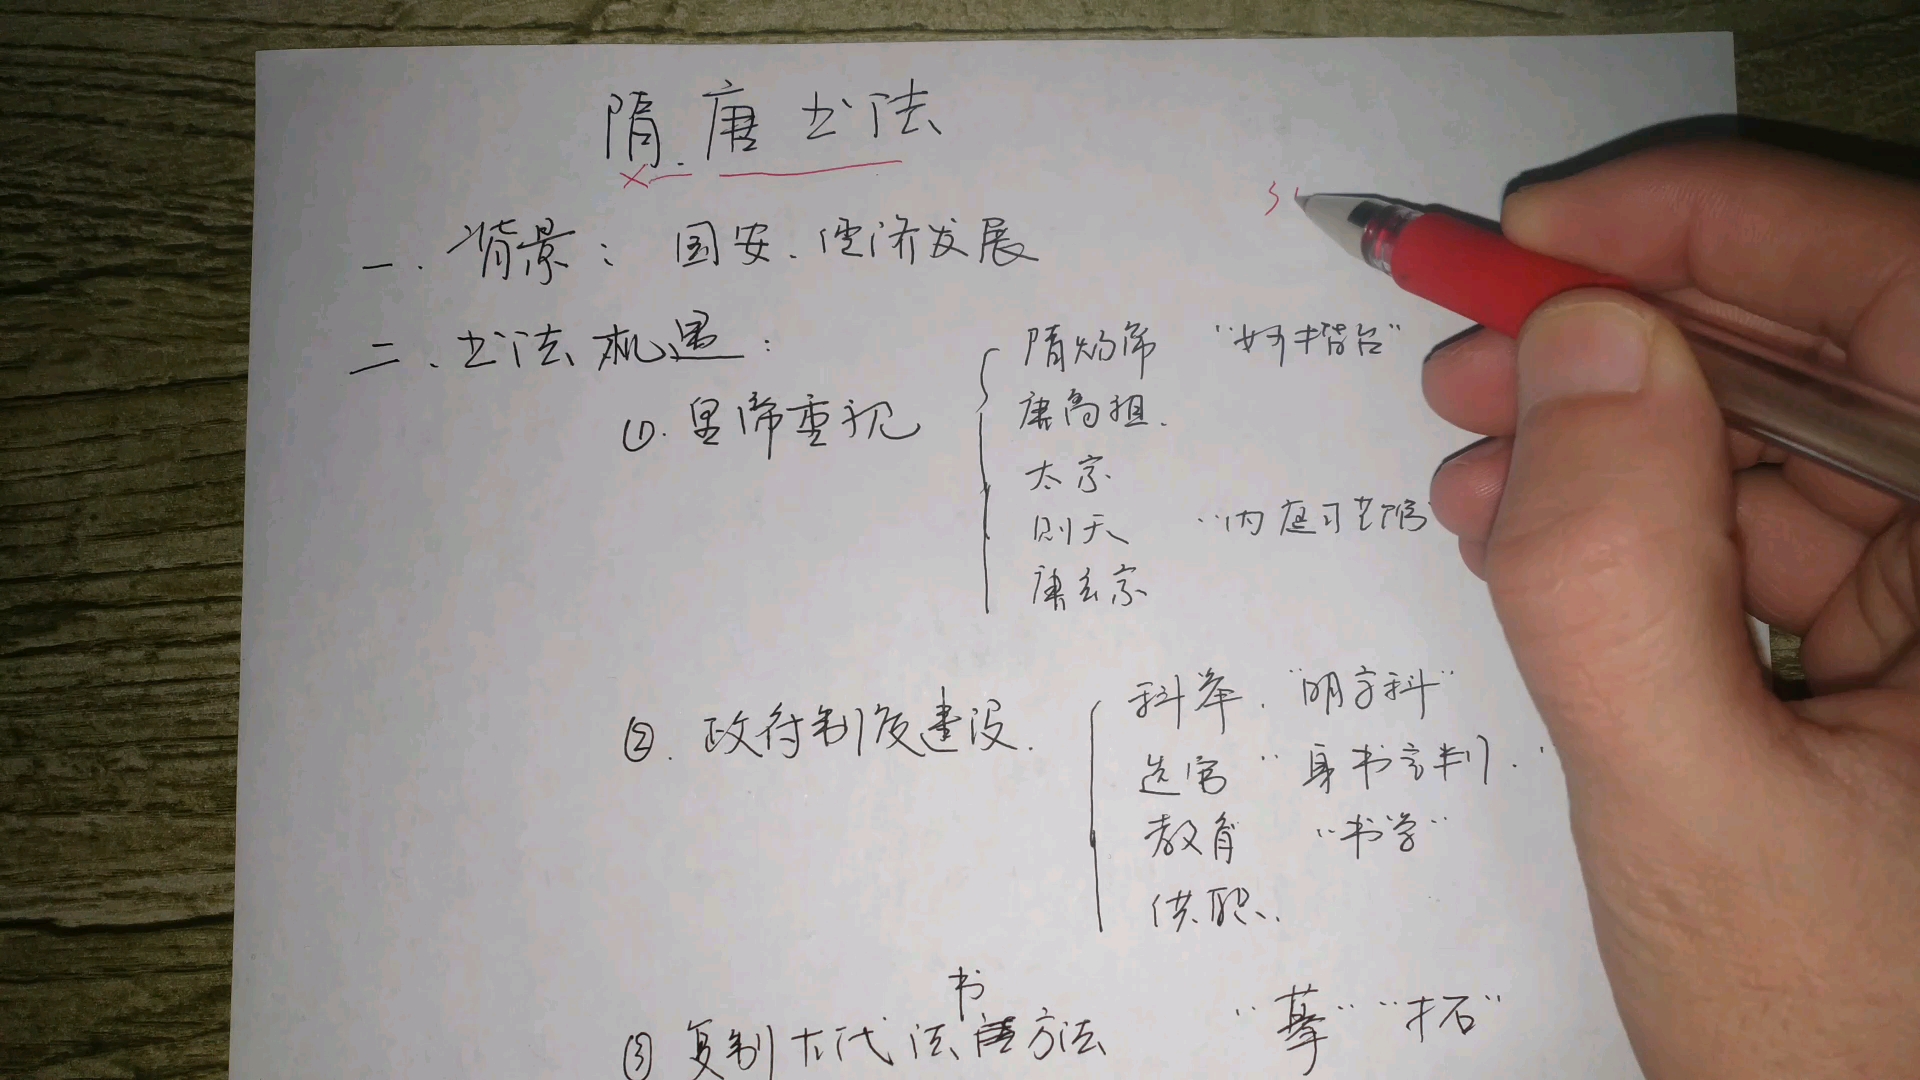 隋.唐书法
一.背景：国安.经济发展
二.书法机遇：
①.皇帝重视
隋炀帝 “妙楷台”
唐高祖.
太宗
则天 “内庭习艺馆
唐玄宗
②.政府制度建设.
科举.“明字科”
选官 “身书言判.
教育 “书学”
供职.
③复制古代法书方法 “摹”“拓”